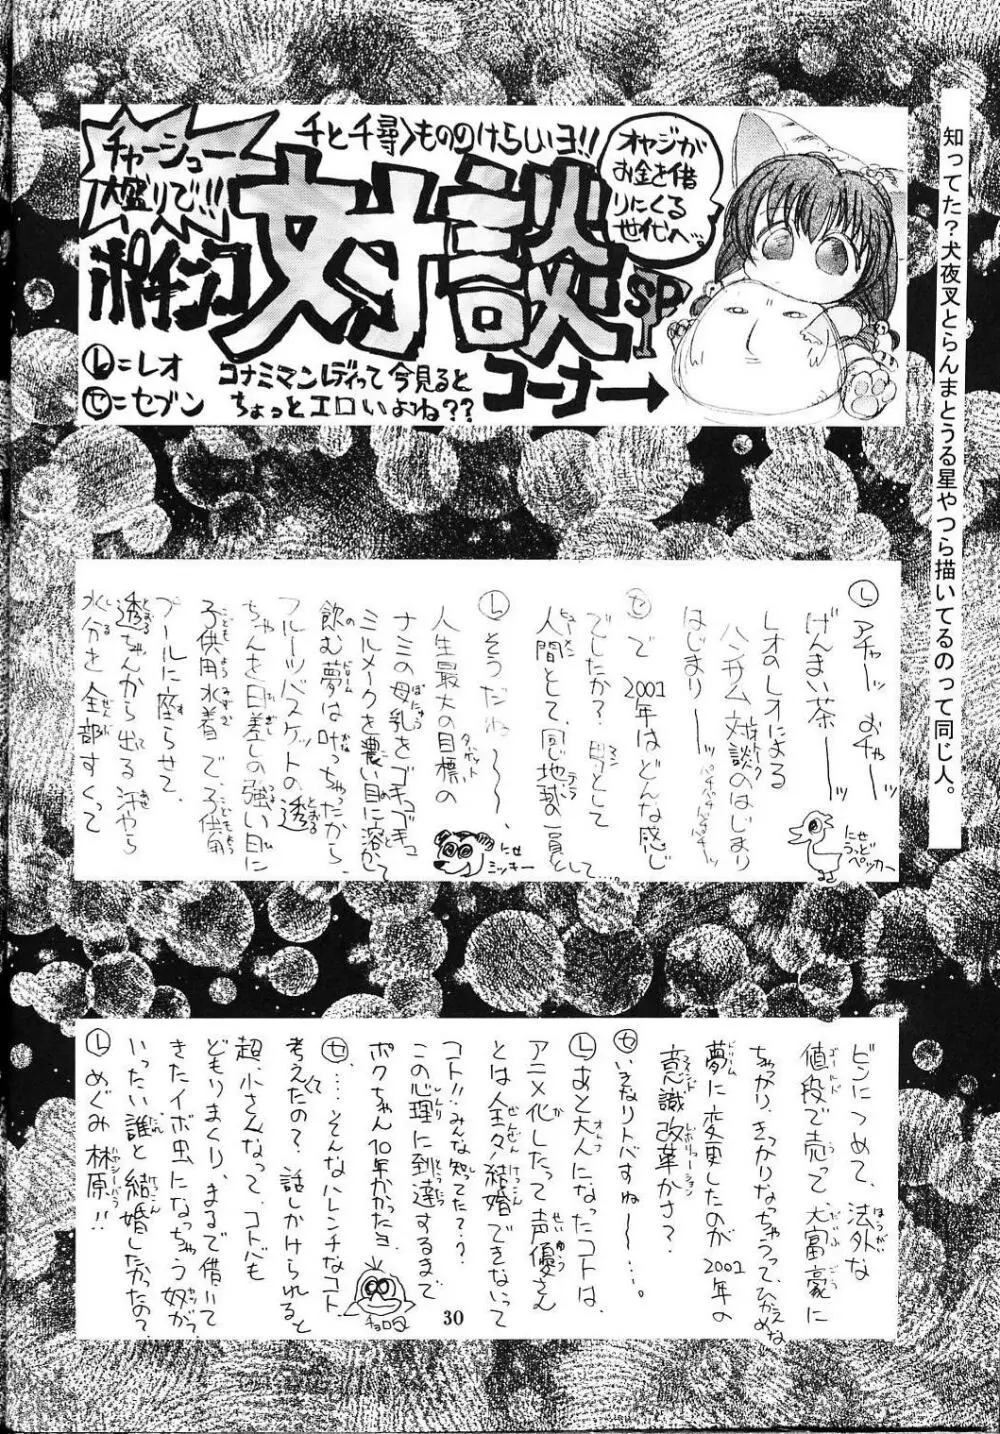 知ってた？犬夜叉とらんまとうる星やつら描いてるのって同じ人。
チャーシュー
大盛りで!!!
千と千尋＞もののけらしいヨ!!
オヤジが
お金を借
りにくる
世代へ。
ポイズンコ
対談
SP
コーナー→
Ⓛ=レオ
㋝=セブン
コナミマンレディって今見ると
ちょっとエロいよね??
Ⓛアチャーッ おチャーッ
げんまい茶ーーッ
レオのレオによる
ハンサム対談のはじまり
はじまりーーッ
にせ
うっど
ペッカー
㋝で 2001年はどんな感じ
でしたか？ 男として
人間として、同じ地球の一員として…。
Ⓛそうだね〜〜、
人生最大の目標の
ナミの母乳をゴキュゴキュ
ミルメークを濃い目に溶かして
飲む夢は叶っちゃったから
フルーツバスケットの透
ちゃんを日差しの強い日に
子供用水着で子供用
プールに座らせて、
透ちゃんから出る汗やら
水分を全部すくって
にせ
ミッキー
ビンにつめて、法外な
値段で売って、大富豪に
ちゃっかり、きっかりなっちゃうってひかえめな
夢に変更したのが 2001年の
意識改革かさ？
㋝いきなりトバすね〜……。
Ⓛあと大人になったコトは、
アニメ化したって声優さん
とは全々結婚できないって
コト!! みんな知ってた???
この心理に到達するまで
ポクちゃん10年かかったヨ
㋝…。そんなハレンチなコト
考えてたの？ 話しかけられると
超、小さくなって、コトバも
どもりまくり、まるで借いて
きたイボ虫になっちゃう奴が？
いったい誰と結婚したかったの？
Ⓛめぐみ林原!!
チョロQ
30